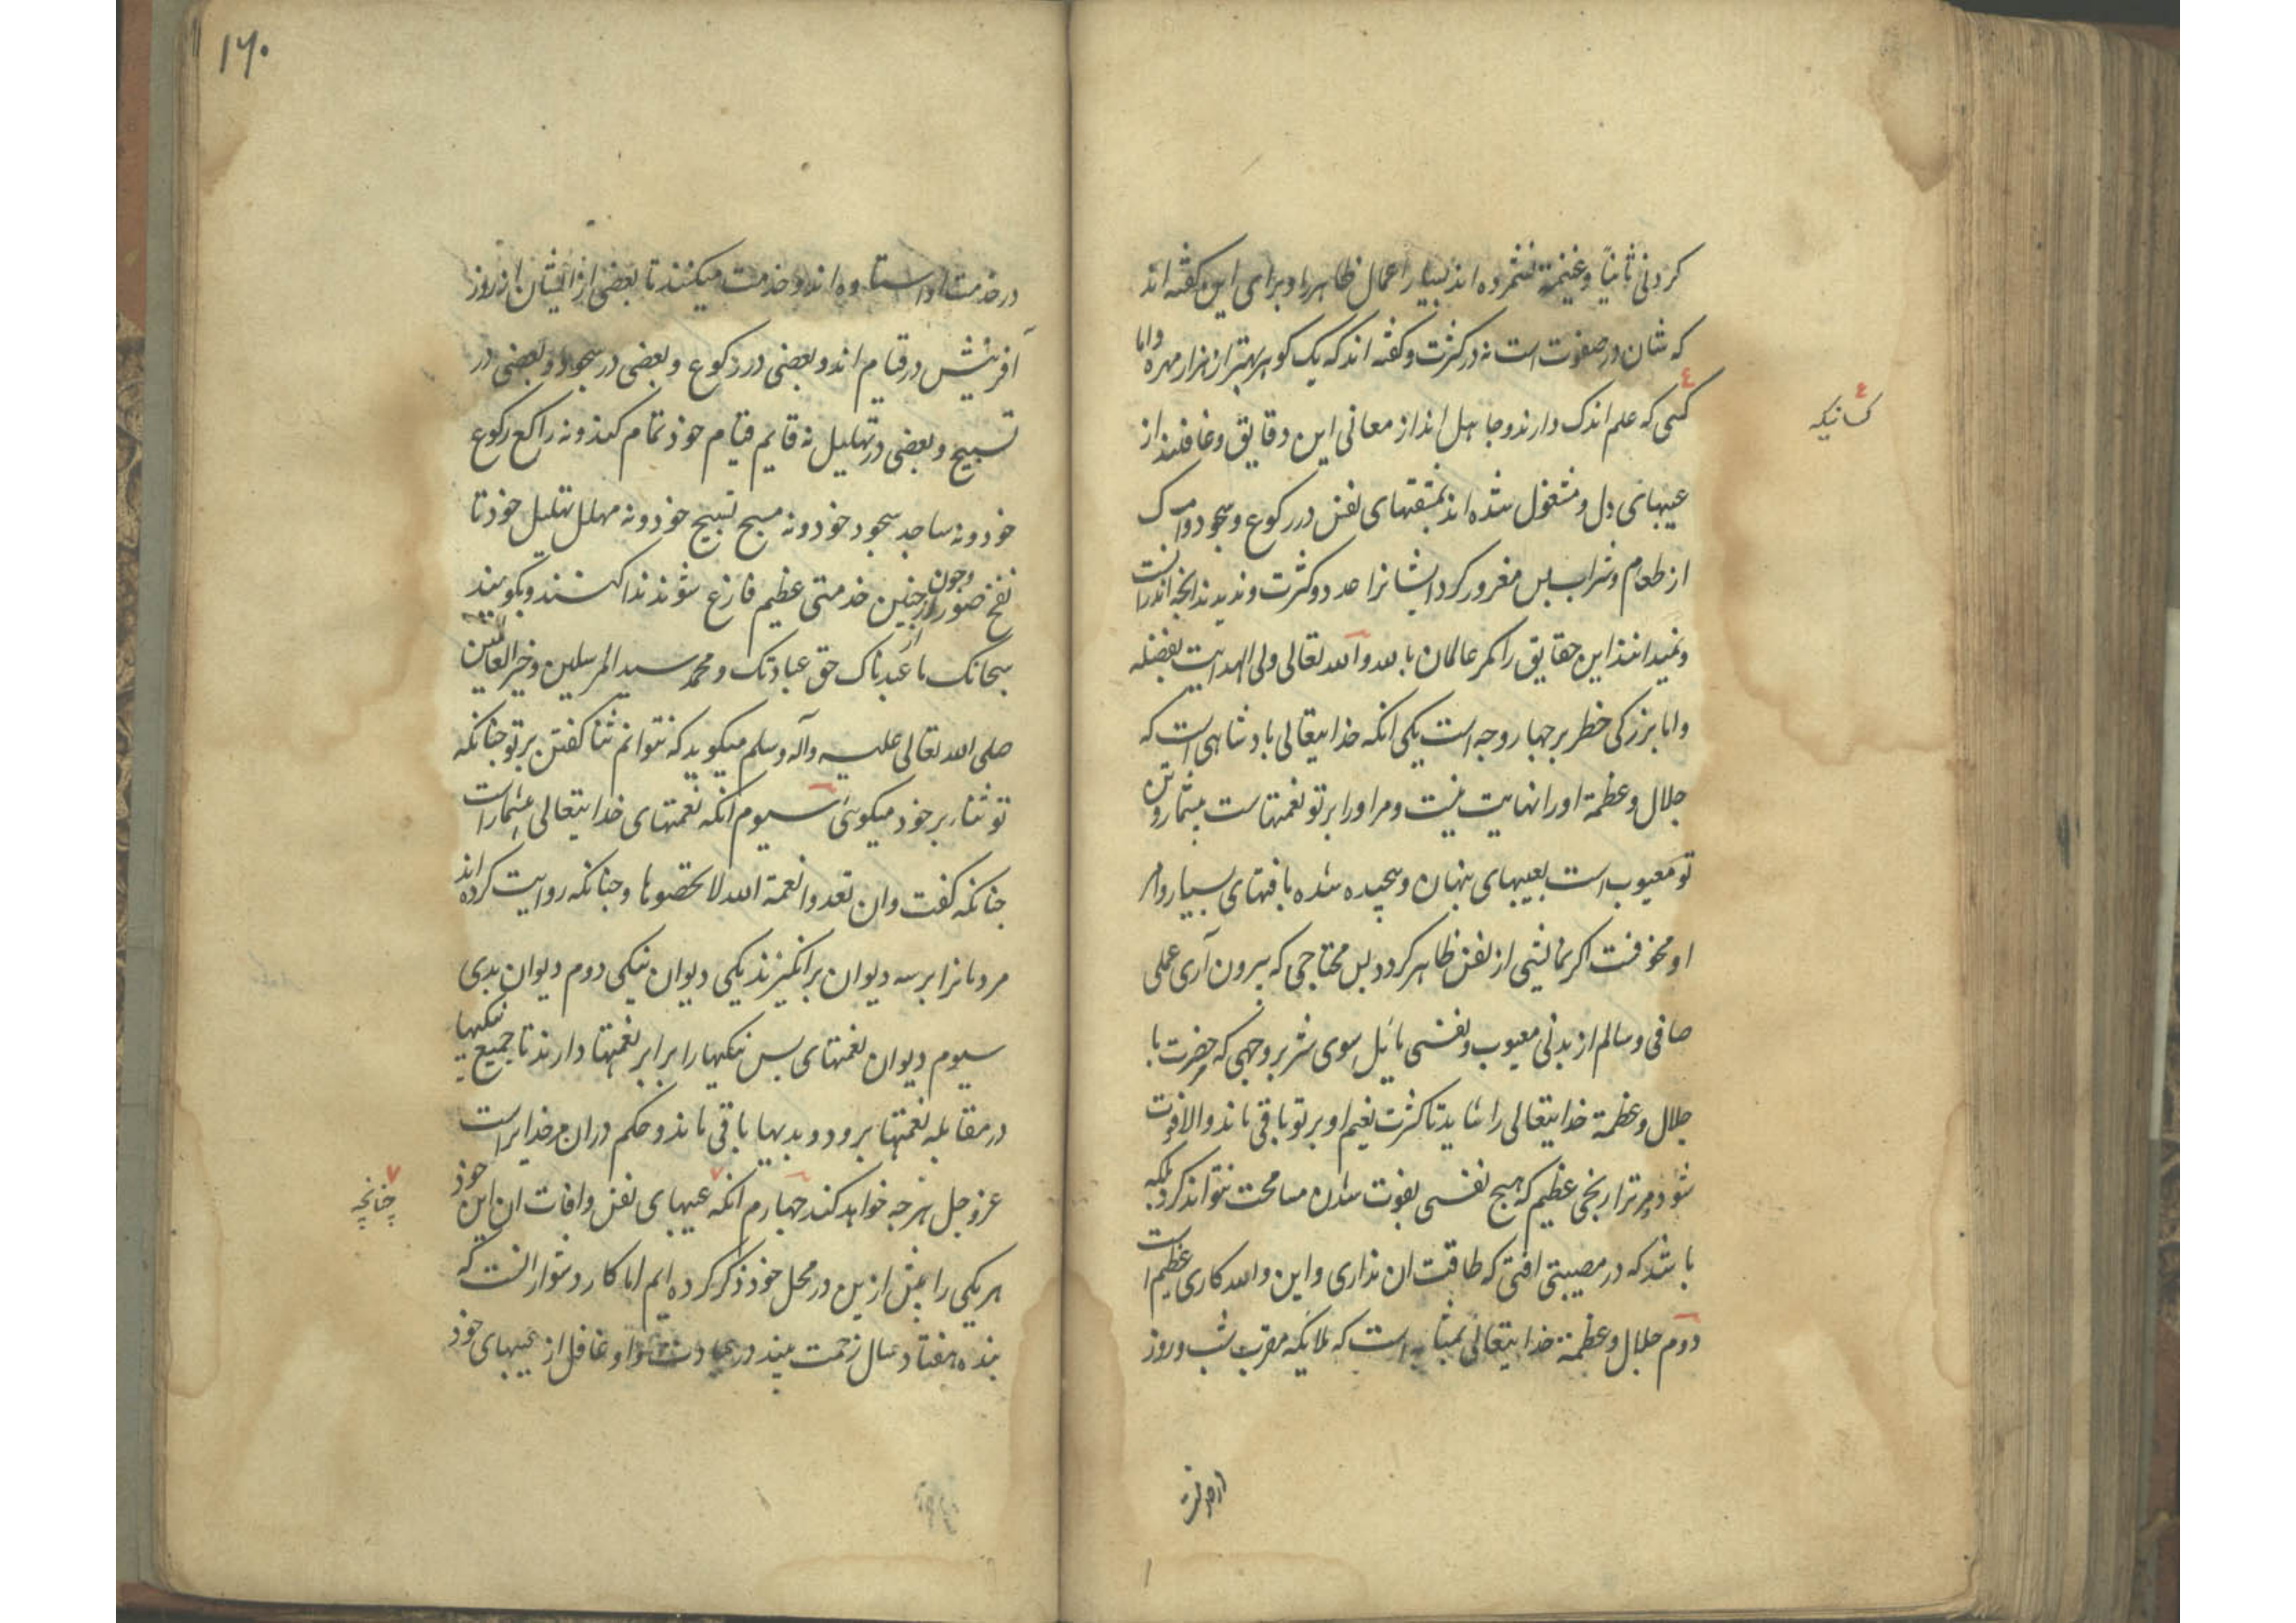 کردنی ثانیا و غنیمة نشمرده اند بسیار اعمال ظاهر را و برای این گفته اند
که شان در صفوت است نه در کثرت و گفته اند که یک گوهر بهتر از هزار مهره و اما
کسی که علم اندک دارند و جاهل اند از معانی این دقایق و غافلند از
کسانیکه
عیبهای دل و مشغول شده اند بمشقتهای نفس در رکوع و سجود و امساک
از طعام و شراب پس مغرور کرد ایشانرا عدد و کثرت و ندیدند انچه اندرانست
و نمیدانند این حقایق را مگر عالمان بالله و الله تعالی ولی الهدایت بفضله
و اما بزرگی خطر بر چهار وجه است یکی انکه خدایتعالی پادشاهی است که
جلال و عظمة او را نهایت نیست و مر او را بر تو نعمتهاست بیشمار و تن
تو معیوب است بعیبهای پنهان و پیچیده شده بافتهای بسیار و امر
او مخوفست اگر نمایشی از نفس ظاهر کردد پس محتاجی که بیرون آری عملی
صافی و سالم از بدنی معیوب و نفسی مایل سوی شر بر وجهی که حضرت با
جلال و عظمة خدایتعالی را شاید تا کثرت نعیم او بر تو باقی ماند و الا فوت
شود مر ترا ربحی عظیم که هیچ نفسی بفوت شدن مسامحت نتواند کرد بلکه
باشد که در مصیبتی افتی که طاقت ان نداری و این والله کاری عظیم است
دوم جلال و عظمة خدایتعالی بمثابه است که ملایکه مقرب شب و روز
در خدمت
در خدمت او استاده اند و خدمت میکنند تا بعضی از ایشان از روز
آفرینش در قیام اند و بعضی در رکوع و بعضی در سجود و بعضی در
تسبیح و بعضی در تهلیل نه قایم قیام خود تمام کند و نه راکع رکوع
خود و نه ساجد سجود خود و نه مسبح تسبیح خود و نه مهلل تهلیل خود تا
نفخ صور و چون از چنین خدمتی عظیم فارغ شوند ندا کنند و بگویند
سبحانک ما عبدناک حق عبادتک و محمد سید المرسلین و خیر العالمین
صلی الله تعالی علیه و آله و سلم میگوید که نتوانم ثنا گفتن بر تو چنانکه
تو ثناء بر خود میگوئی سیوم انکه نعمتهای خدایتعالی بیشمار است
چنانکه گفت وان تعدوا نعمة الله لا تحصوها و چنانکه روایت کرده اند
مردمانرا بر سه دیوان برانگیزند یکی دیوان نیکی دوم دیوان بدی
سیوم دیوان نعمتهای پس نیکیها را برابر نعمتها دارند تا جمیع نیکیها
در مقابله نعمتها برود و بدیها باقی ماند و حکم دران مر خدایراست
عز و جل هرچه خواهد کند چهارم انکه عیبهای نفس و افات ان این خود
چنانچه
هر یکی را پیش ازین در محل خود ذکر کرده ایم اما کار دشوار انست که
بنده هفتاد سال زحمت بیند در عبادت و او غافل از عیبهای خود
۱۶۰